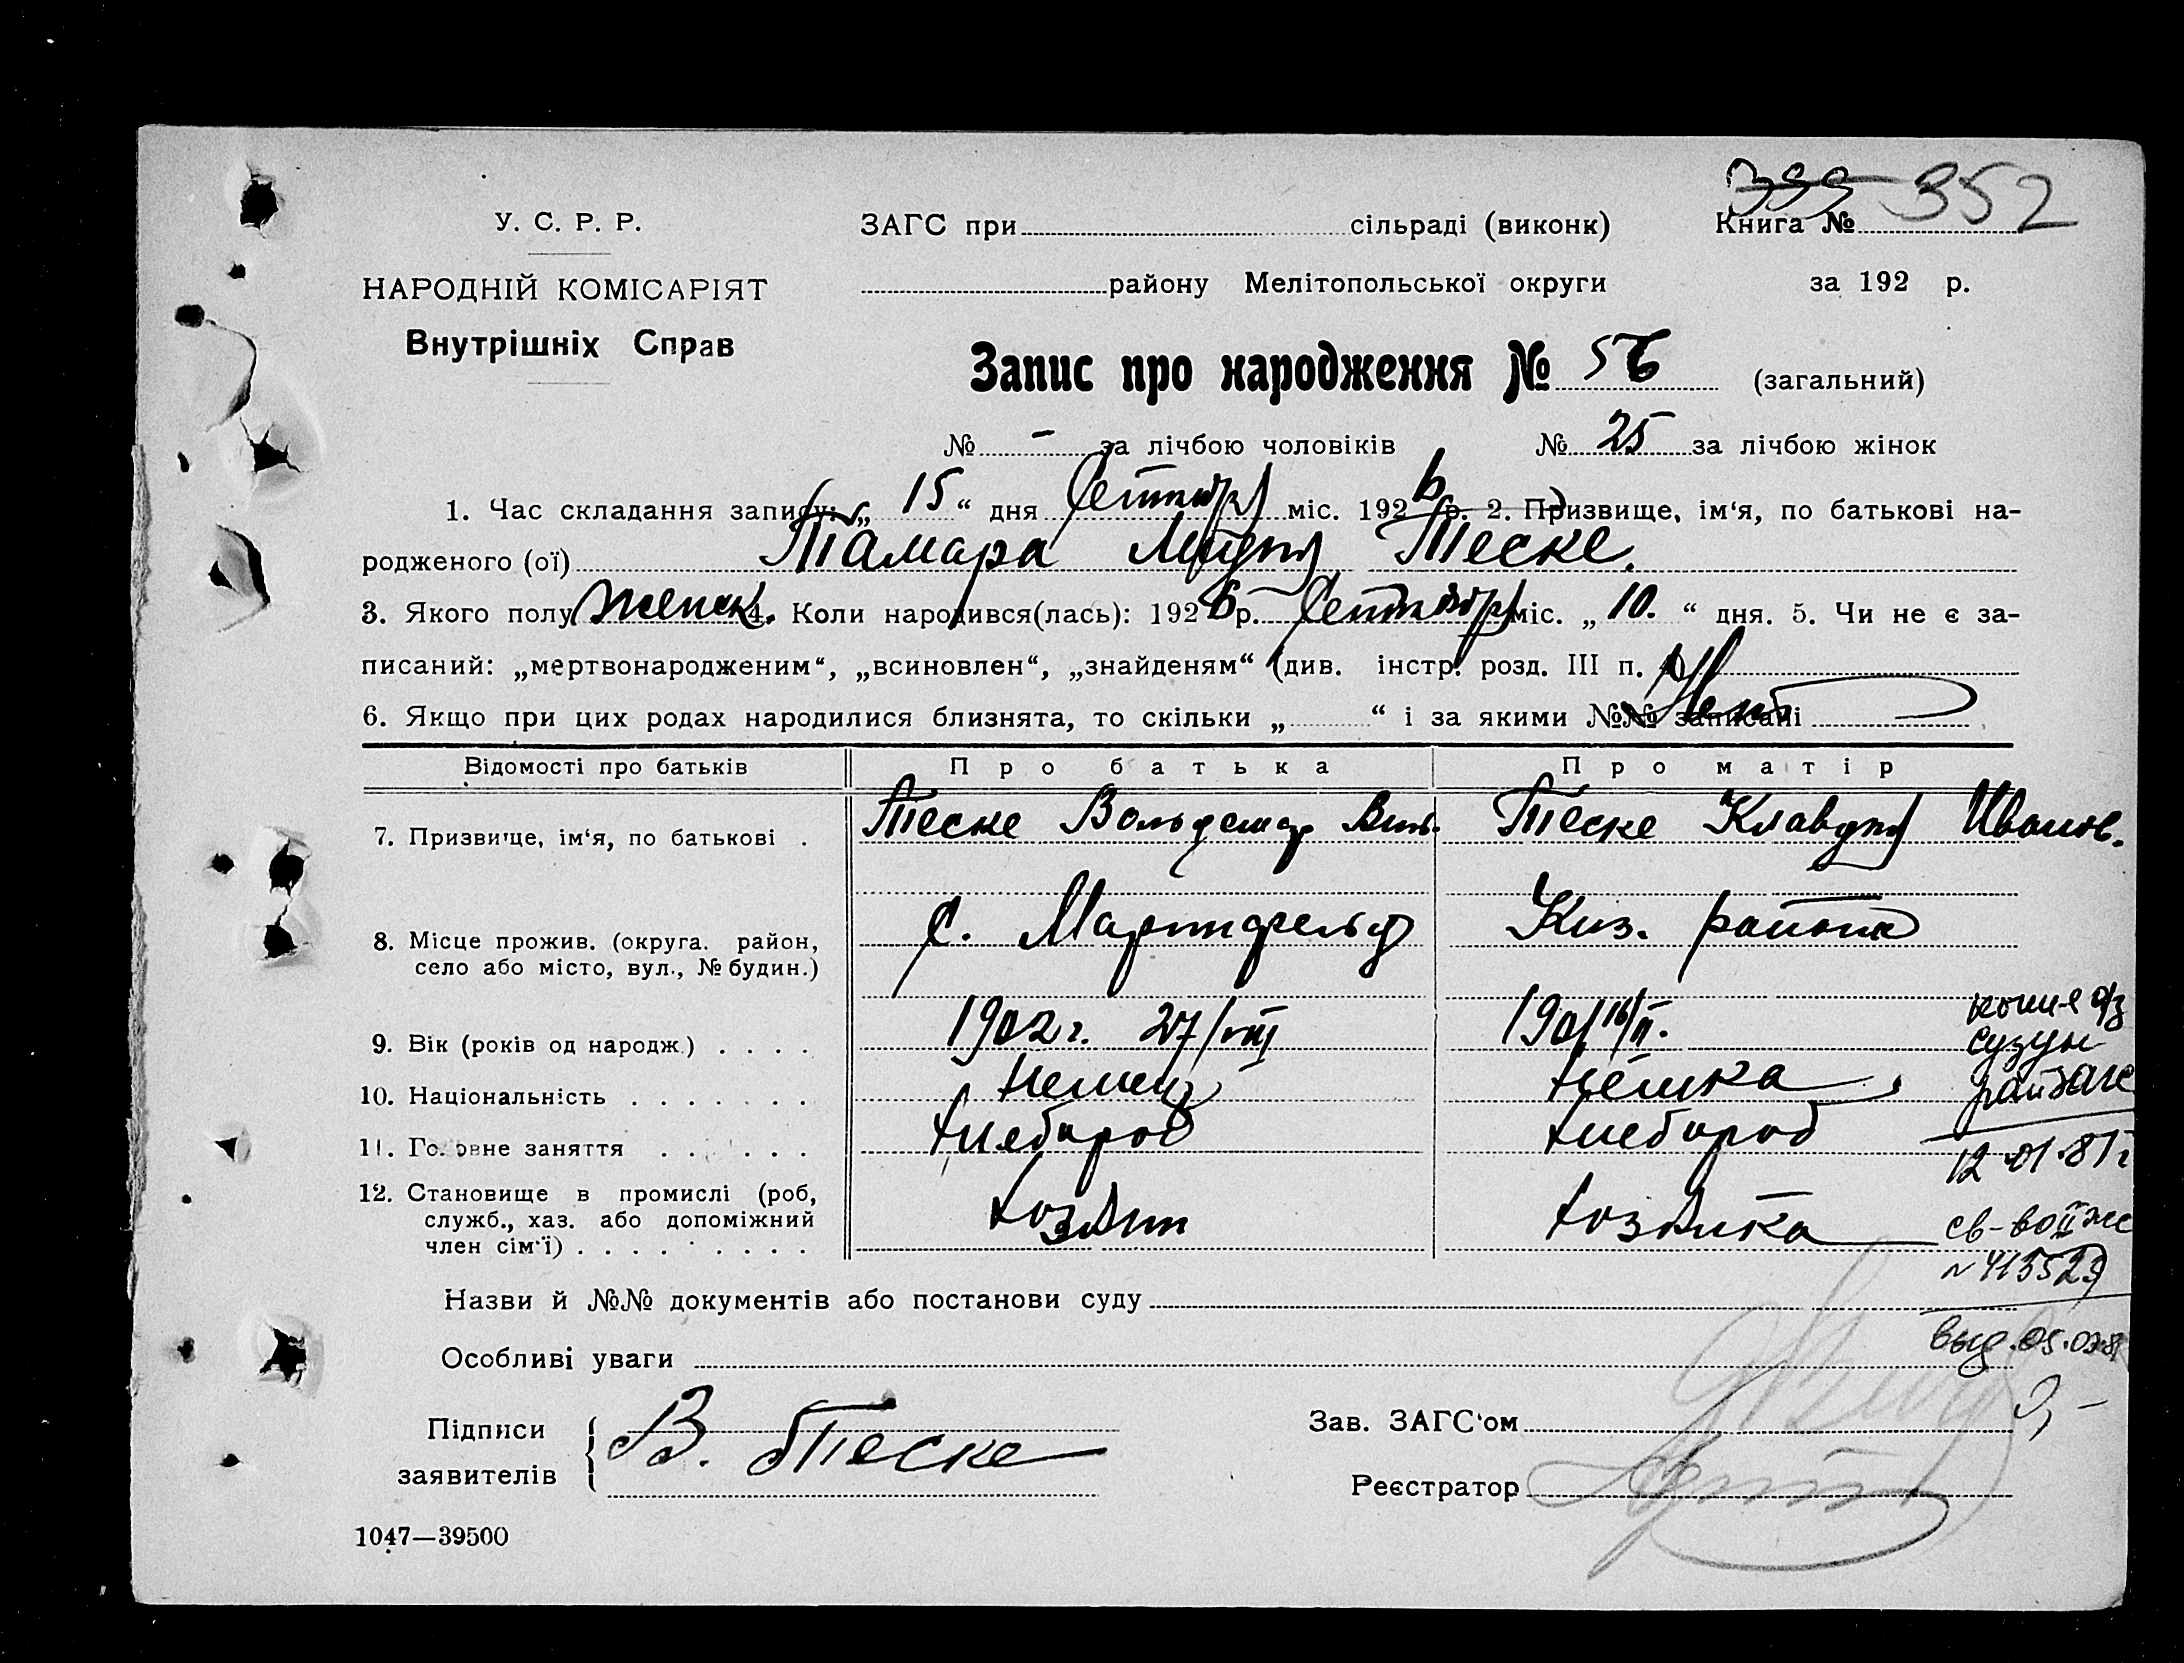 399 352
У. С. Р. Р.
ЗАГС при сільраді (виконк)
Книга №
НАРОДНІЙ КОМІСАРІЯТ
району Мелітопольської округи
за 192 р.
Внутрішніх Справ
Запис про народження № 56 (загальний)
№ - за лічбою чоловіків № 25 за лічбою жінок
1. Час складання запису: „ 15 “ дня міс. 1926 р. 2. Призвище, ім‘я, по батькові на-
родженого (ої) Тамара Теске.
3. Якого полу женск. 4. Коли народився(лась): 1926 р. міс. „ 10. “ дня. 5. Чи не є за-
писаний: „мертвонародженим“, „всиновлен“, „знайденям“ (див. інстр. розд. III п.
6. Якщо при цих родах народилися близнята, то скільки „ “ і за якими №№ записані Нет
Відомості про батьків
Про батька
Про матір
7. Призвище, ім‘я, по батькові .
Теске Вольдемар Виль.
Теске Клавдия Иванов.
8. Місце прожив. (округа. район,
село або місто, вул., № будин.)
с. Мартфельд
Киз. района
9. Вік (років од народж.) . . . .
1902 г. 27/VIII
1901 16/II.
10. Національність . . . . . . .
Немец
Немка
11. Головне заняття . . . . . .
Хлебороб
Хлебороб
12. Становище в промислі (роб,
служб., хаз. або допоміжний
член сім‘ї) . . . . . . . . .
Хозяин
Хозяйка
копия а/з
Сузун
райзагс
12.01.81г
св-во
N 413523
выд. 05.02.81
Назви й №№ документів або постанови суду
Особливі уваги
Підписи
заявителів
В. Теске
Зав. ЗАГС‘ом
Реєстратор
1047—39500